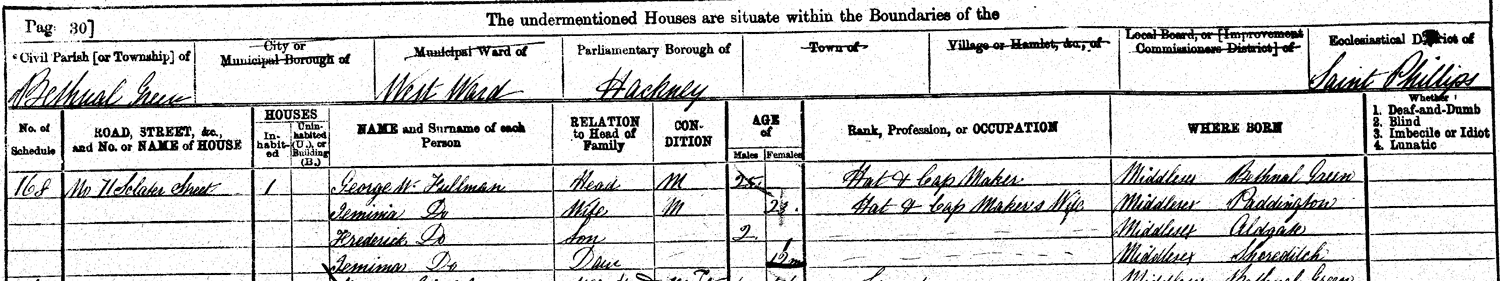 Pag: 30]
The undermentioned Houses are situate within the Boundaries of the
Civil Parish [or Township] of
City or Municipal Borough of
Municipal Ward of
Parliamentary Borough of
Town of
Village or Hamlet, &c., of
Local Board, or [Improvement Commissioners District] of
Ecclesiastical District of
Bethnal Green
West Ward
Hackney
Saint Phillips
No. of Schedule
ROAD, STREET, &c., and No. or NAME of HOUSE
HOUSES
In-habit-ed
Unin-habited (U.), or Building (B.)
NAME and Surname of each Person
RELATION to Head of Family
CON-DITION
AGE of
Males
Females
Rank, Profession, or OCCUPATION
WHERE BORN
Whether
1. Deaf-and-Dumb
2. Blind
3. Imbecile or Idiot
4. Lunatic
168 No 71 Sclater Street 1 George W. Fullman Head M 25 Hat & Cap Maker Middlesex Bethnal Green
Jemima Do Wife M 23 Hat & Cap Maker's Wife Middlesex Paddington
Frederick Do Son 2 Middlesex Aldgate
Jemima Do Daur 12m Middlesex Shoreditch
Bethnal Green